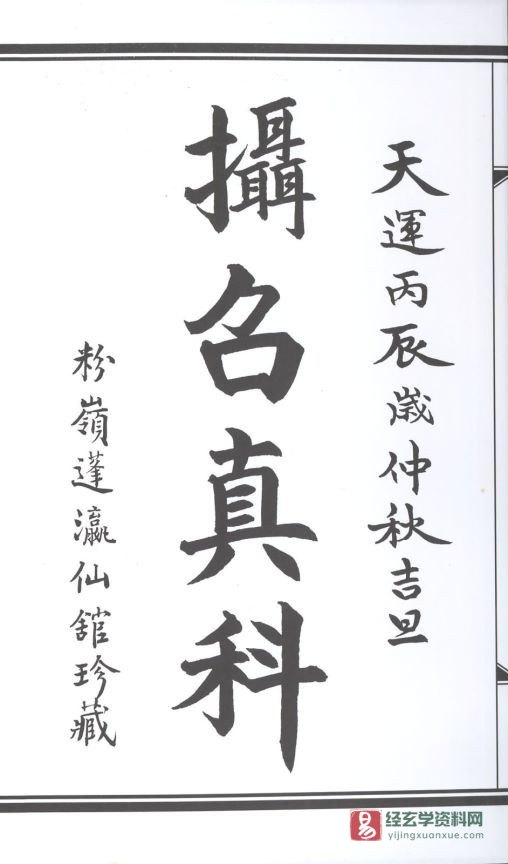 天運丙辰歲仲秋吉旦
攝召真科
粉嶺蓬瀛仙舘珍藏
易
经玄学资料网
yijingxuanxue.com